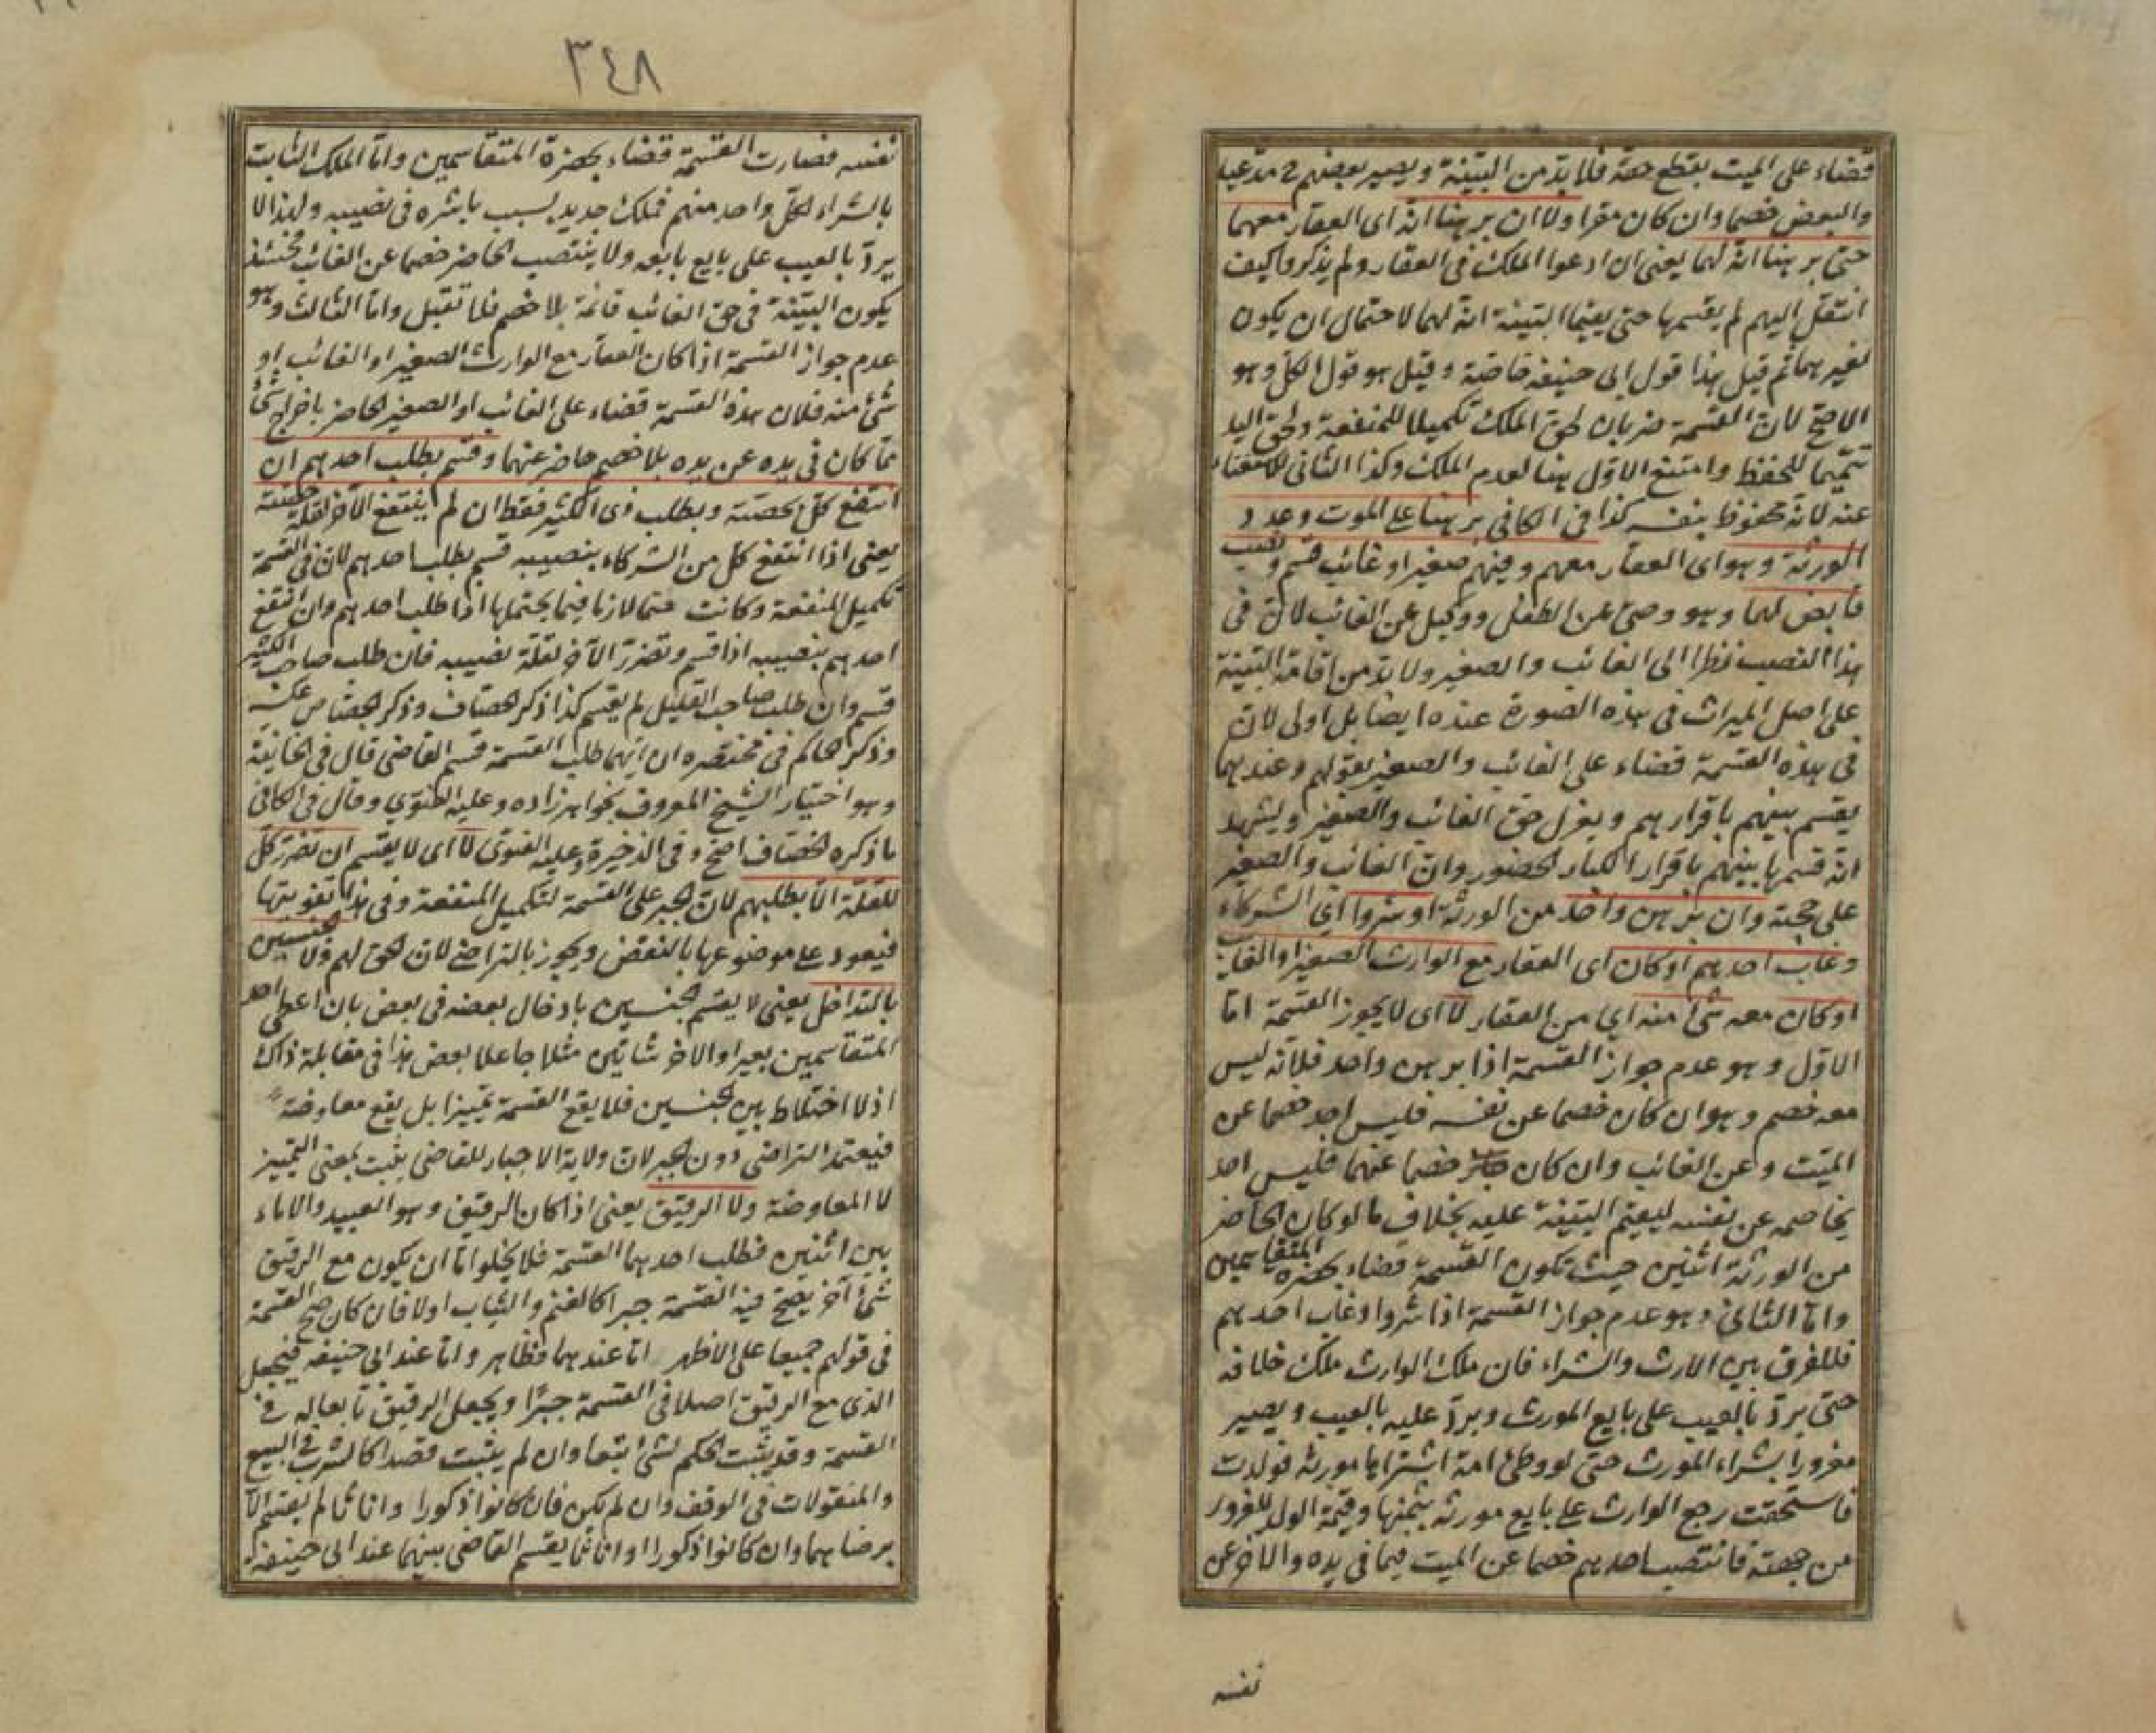 قضاء على الميت بقطع حقه فلا بد من البينة ويصير بعضهم ح مدعيا
والبعض خصما وان كان مقرا ولا ان برهنا انه اى العقار معهما
حتى برهنا انه لهما يعنى ان ادعوا الملك فى العقار ولم يذكروا كيف
انتقل اليهم لم يقسمها حتى يقيما البينة انه لهما لاحتمال ان يكون
لغيرهما ثم قيل هذا قول ابى حنيفة خاصة وقيل هو قول الكل وهو
الاصح لان القسمة ضربان لحق الملك تكميلا للمنفعة ولحق اليد
تتميما للحفظ وامتنع الاول هنا لعدم الملك وكذا الثانى للاستغناء
عنه لانه محفوظ بنفسه كذا فى الكافى برهنا على الموت وعدد
الورثة وهو اى العقار معهم وفيهم صغير او غائب قسم ونصب
قابض لهما وهو وصى عن الطفل ووكيل عن الغائب لان فى
هذا النصب نظرا الى الغائب والصغير ولا بد من اقامة البينة
على اصل الميراث فى هذه الصورة عنده ايضا بل اولى لان
فى هذه القسمة قضاء على الغائب والصغير بقولهم وعندهما
يقسم بينهم باقرارهم ويعزل حق الغائب والصغير ويشهد
انه قسمها بينهم باقرار الكبار الحضور وان الغائب والصغير
على حجته وان برهن واحد من الورثة او شروا اى الشركاء
وغاب احدهم او كان اى العقار مع الوارث الصغير او الغائب
او كان معه شئ منه اى من العقار لا اى لا يجوز القسمة اما
الاول وهو عدم جواز القسمة اذا برهن واحد فلانه ليس
معه خصم وهو ان كان خصما عن نفسه فليس احد خصما عن
الميت وعن الغائب وان كان خصما عنهما فليس احد
يخاصمه عن نفسه ليقيم البينة عليه بخلاف ما لو كان الحاضر
من الورثة اثنين حيث تكون القسمة قضاء بحضرة المتقاسمين
واما الثانى وهو عدم جواز القسمة اذا شروا وغاب احدهم
فللفرق بين الارث والشراء فان ملك الوارث ملك خلافة
حتى يرد بالعيب على بايع المورث ويرد عليه بالعيب ويصير
مغرورا بشراء المورث حتى لو وطئ امة اشتراها مورثه فولدت
فاستحقت رجع الوارث على بايع مورثه بثمنها وقيمة الولد للغرور
من جهته فانتصب احدهم خصما عن الميت فيما فى يده والاخر عن
نفسه
٣٤٨
نفسه فصارت القسمة قضاء بحضرة المتقاسمين واما الملك الثابت
بالشراء لكل واحد منهم فملك جديد بسبب باشره فى نصيبه ولهذا لا
يرد بالعيب على بايع بايعه ولا ينتصب الحاضر خصما عن الغائب فحينئذ
يكون البينة فى حق الغائب قائمة بلا خصم فلا تقبل واما الثالث وهو
عدم جواز القسمة اذا كان العقار مع الوارث الصغير او الغائب او
شئ منه فلان هذه القسمة قضاء على الغائب او الصغير الحاضر باخراج شئ
مما كان فى يده عن يده بلا خصم حاضر عنهما وقسم بطلب احدهم ان
انتفع كل بحصته وبطلب ذى الكثير فقط ان لم ينتفع الآخر لقلة حصته
يعنى اذا انتفع كل من الشركاء بنصيبه قسم بطلب احدهم لان فى القسمة
تكميل المنفعة وكانت حتما لازما فيما يحتملها اذا طلب احدهم وان انتفع
احدهم بنصيبه اذا قسم وتضرر الآخر لقلة نصيبه فان طلب صاحب الكثير
قسم وان طلب صاحب القليل لم يقسم كذا ذكر الخصاف وذكر الجصاص عكسه
وذكر الحاكم فى مختصره ان ايهما طلب القسمة قسم القاضى قال فى الخانية
وهو اختيار الشيخ المعروف بخواهر زاده وعليه الفتوى وقال فى الكافى
ما ذكره الخصاف اصح وفى الذخيرة وعليه الفتوى لا اى لا يقسم ان تضرر كل
للقلة الا بطلبهم لان الجبر على القسمة لتكميل المنفعة وفى هذا تفويتها
فيعود على موضوعها بالنقض ويجوز بالتراضى لان الحق لهم ولا الجنسين
بالتداخل يعنى لا يقسم الجنسين بادخال بعضه فى بعض بان اعطى احد
المتقاسمين بعيرا والاخر شاتين مثلا جاعلا بعض هذا فى مقابلة ذاك
اذ لا اختلاط بين الجنسين فلا يقع القسمة تمييزا بل يقع معاوضة
فيعتمد التراضى دون الجبر لان ولاية الاجبار للقاضى يثبت بمعنى التمييز
لا المعاوضة ولا الرقيق يعنى اذا كان الرقيق وهو العبيد والاماء
بين اثنين فطلب احدهما القسمة فلا يخلو اما ان يكون مع الرقيق
شئ آخر يصح فيه القسمة جبرا كالغنم والثياب اولا فان كان صح القسمة
فى قولهم جميعا على الاظهر اما عندهما فظاهر واما عند ابى حنيفة فيجعل
الذى مع الرقيق اصلا فى القسمة جبرا ويجعل الرقيق تابعا له فى
القسمة وقد يثبت الحكم لشئ تبعا وان لم يثبت قصدا كالشرب فى البيع
والمنقولات فى الوقف وان لم يكن فان كانوا ذكورا واناثا لم يقسم الا
برضاهما وان كانوا ذكورا او اناثا يقسم القاضى بينهما عند ابى حنيفة